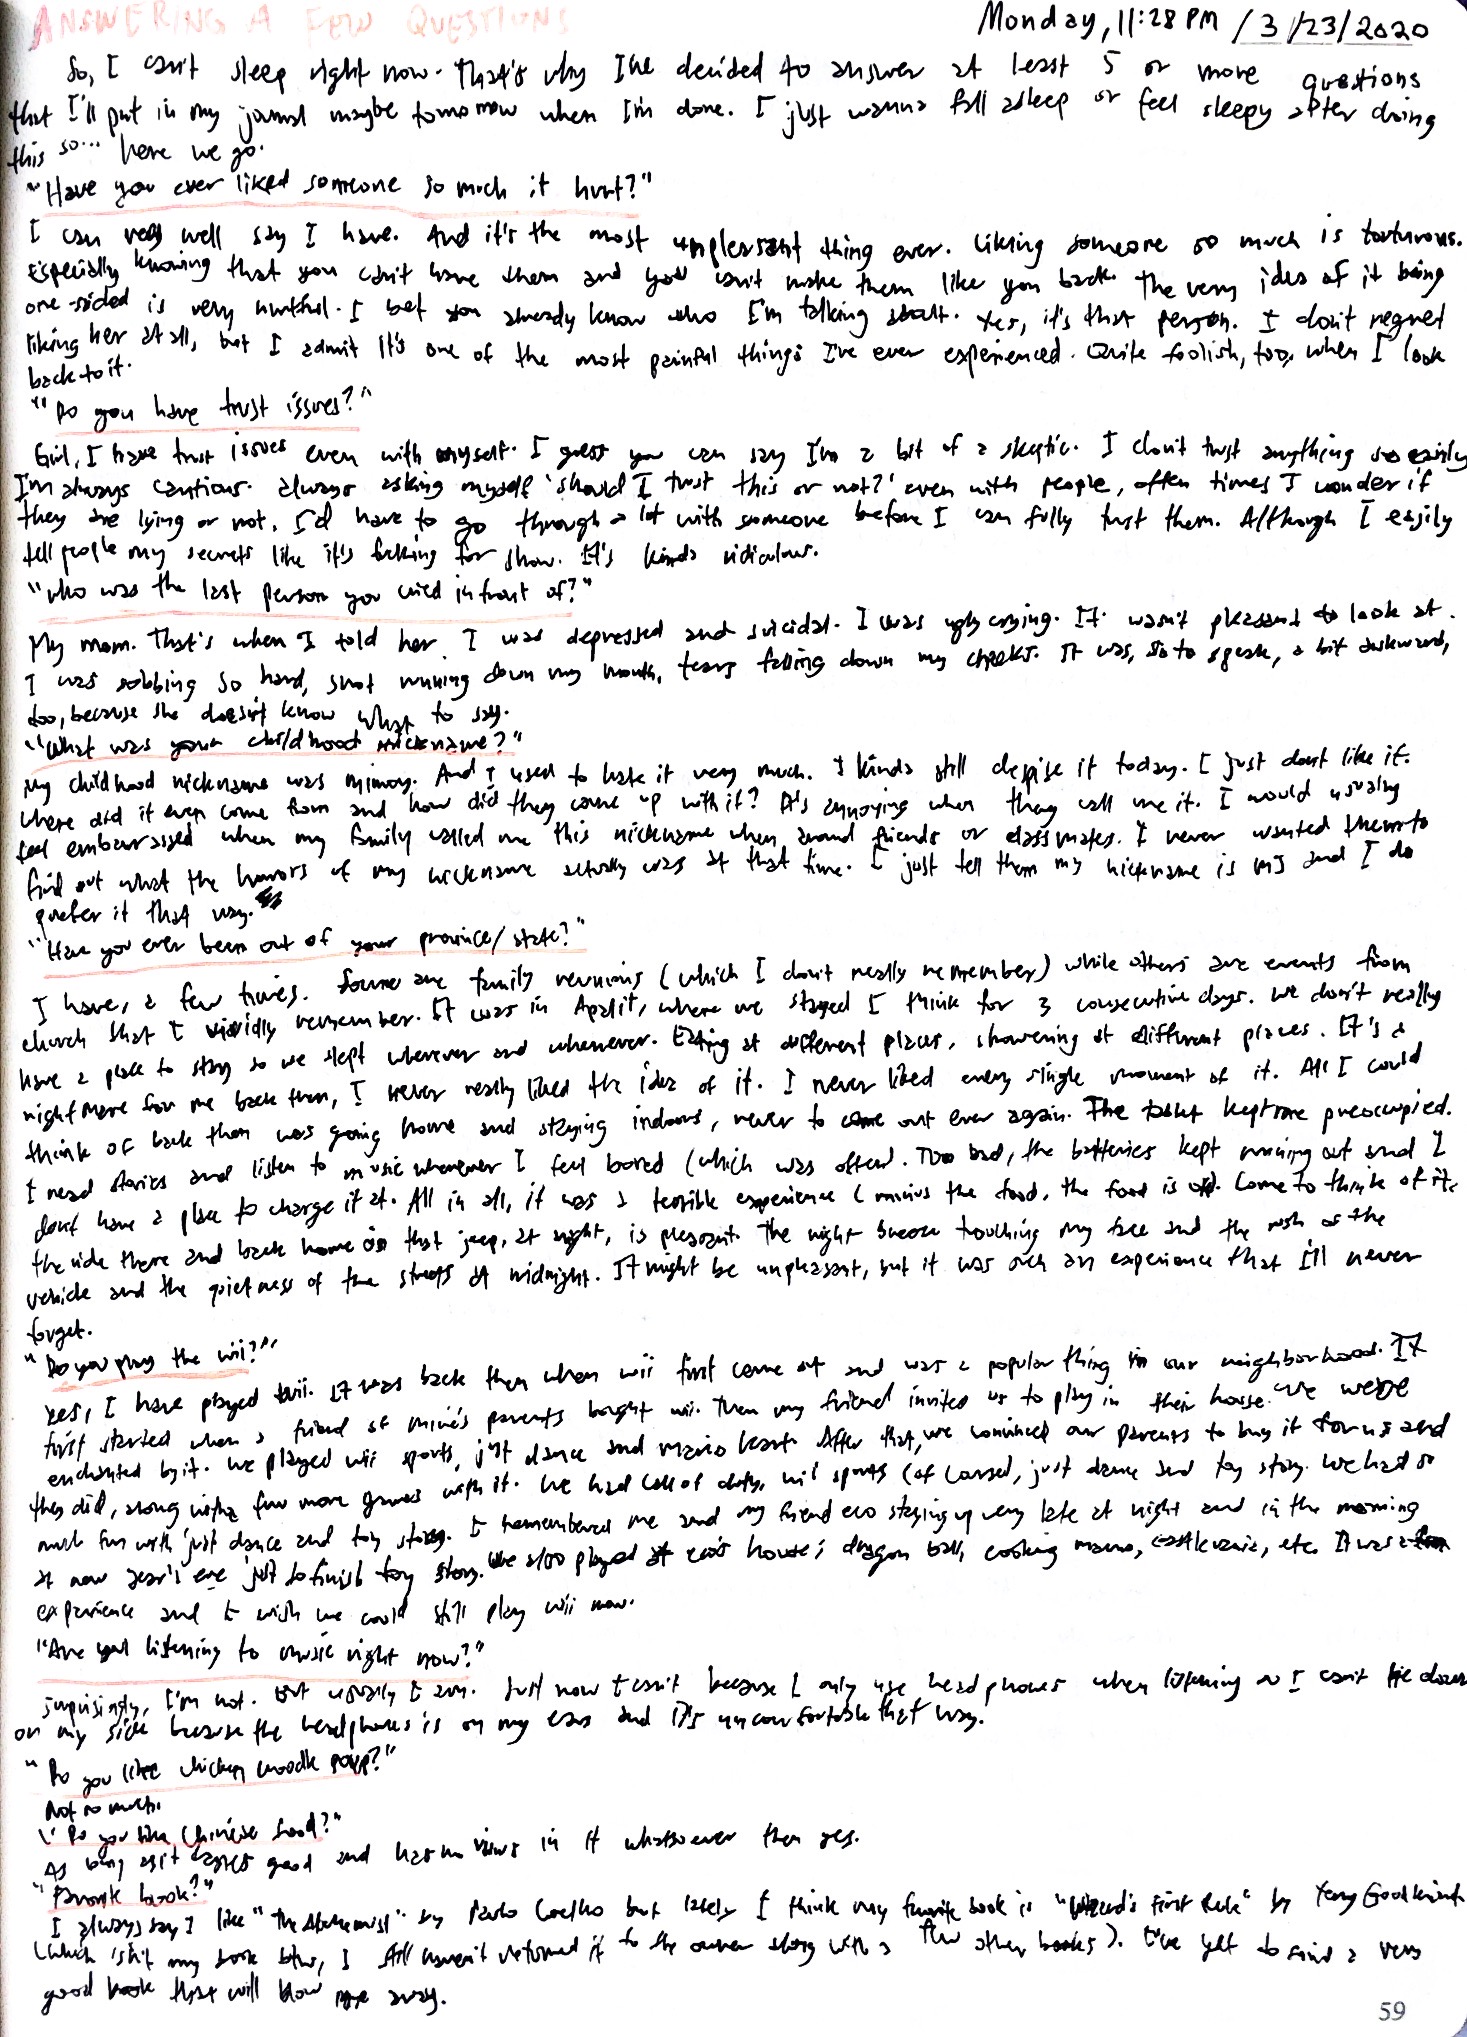 ANSWERING A FEW QUESTIONS
Monday, 11:28 PM / 3/23/2020
So, I can't sleep right now. That's why I've decided to answer at least 5 or more questions
that I'll put in my journal maybe tomorrow when I'm done. I just wanna fall asleep or feel sleepy after doing
this so... here we go.
"Have you ever liked someone so much it hurt?"
I can very well say I have. And it's the most unpleasant thing ever. Liking someone so much is torturous.
Especially knowing that you can't have them and you can't make them like you back. The very idea of it being
one-sided is very hurtful. I bet you already know who I'm talking about. Yes, it's that person. I don't regret
liking her at all, but I admit it's one of the most painful things I've ever experienced. Quite foolish, too, when I look
back to it.
"Do you have trust issues?"
Girl, I have trust issues even with myself. I guess you can say I'm a bit of a skeptic. I don't trust anything so easily
I'm always cautious. always asking myself 'should I trust this or not?' even with people, often times I wonder if
they are lying or not. I'd have to go through a lot with someone before I can fully trust them. Although I easily
tell people my secrets like it's fucking for show. It's kinda ridiculous.
"Who was the last person you cried in front of?"
My mom. That's when I told her I was depressed and suicidal. I was ugly crying. It wasn't pleasant to look at.
I was sobbing so hard, snot running down my mouth, tears falling down my cheeks. It was, so to speak, a bit awkward,
too, because she doesn't know what to say.
"What was your childhood nickname?"
My childhood nickname was mimoy. And I used to hate it very much. I kinda still despise it today. I just don't like it.
Where did it even come from and how did they come up with it? It's annoying when they call me it. I would usually
feel embarrassed when my family called me this nickname when around friends or classmates. I never wanted them to
find out what the horrors of my nickname actually was at that time. I just tell them my nickname is MJ and I do
prefer it that way.
"Have you ever been out of your province/state?"
I have, a few times. Some are family reunions (which I don't really remember) while others are events from
church that I vividly remember. It was in Apalit, where we stayed I think for 3 consecutive days. We don't really
have a place to stay so we slept wherever and whenever. Eating at different places, showering at different places. It's a
nightmare for me back then, I never really liked the idea of it. I never liked every single moment of it. All I could
think of back then was going home and staying indoors, never to come out ever again. The tablet kept me preoccupied.
I read stories and listen to music whenever I feel bored (which was often). Too bad, the batteries kept running out and I
don't have a place to charge it at. All in all, it was a terrible experience (minus the food, the food is ok). Come to think of it,
the ride there and back home on that jeep, at night, is pleasant. The night breeze touching my face and the rush of the
vehicle and the quietness of the streets at midnight. It might be unpleasant, but it was such an experience that I'll never
forget.
"Do you play the wii?"
Yes, I have played wii. It was back then when wii first came out and was a popular thing in our neighborhood. It
first started when a friend of mine's parents bought wii. Then my friend invited us to play in their house. We were
enchanted by it. We played wii sports, just dance and mario kart. After that, we convinced our parents to buy it for us and
they did, along with a few more games with it. We had call of duty, wii sports (of course), just dance and toy story. We had so
much fun with just dance and toy story. I remembered me and my friend eco staying up very late at night and in the morning
at new year's eve just to finish toy story. We also played at eco's house; dragon ball, cooking mama, castlevania, etc. It was a fun
experience and I wish we could still play wii now.
"Are you listening to music right now?"
Surprisingly, I'm not. But usually I am. Just now I can't because I only use headphones when listening so I can't lie down
on my side because the headphones is on my ears and it's uncomfortable that way.
"Do you like chicken noodle soup?"
Not so much.
"Do you like Chinese food?"
As long as it tastes good and has no virus in it whatsoever then yes.
"Favorite book?"
I always say I like "The Alchemist" by Paulo Coelho but lately I think my favorite book is "Wizard's First Rule" by Terry Goodkind
(which isn't my book btw, I still haven't returned it to the owner along with a few other books). I've yet to find a very
good book that will blow me away.
59